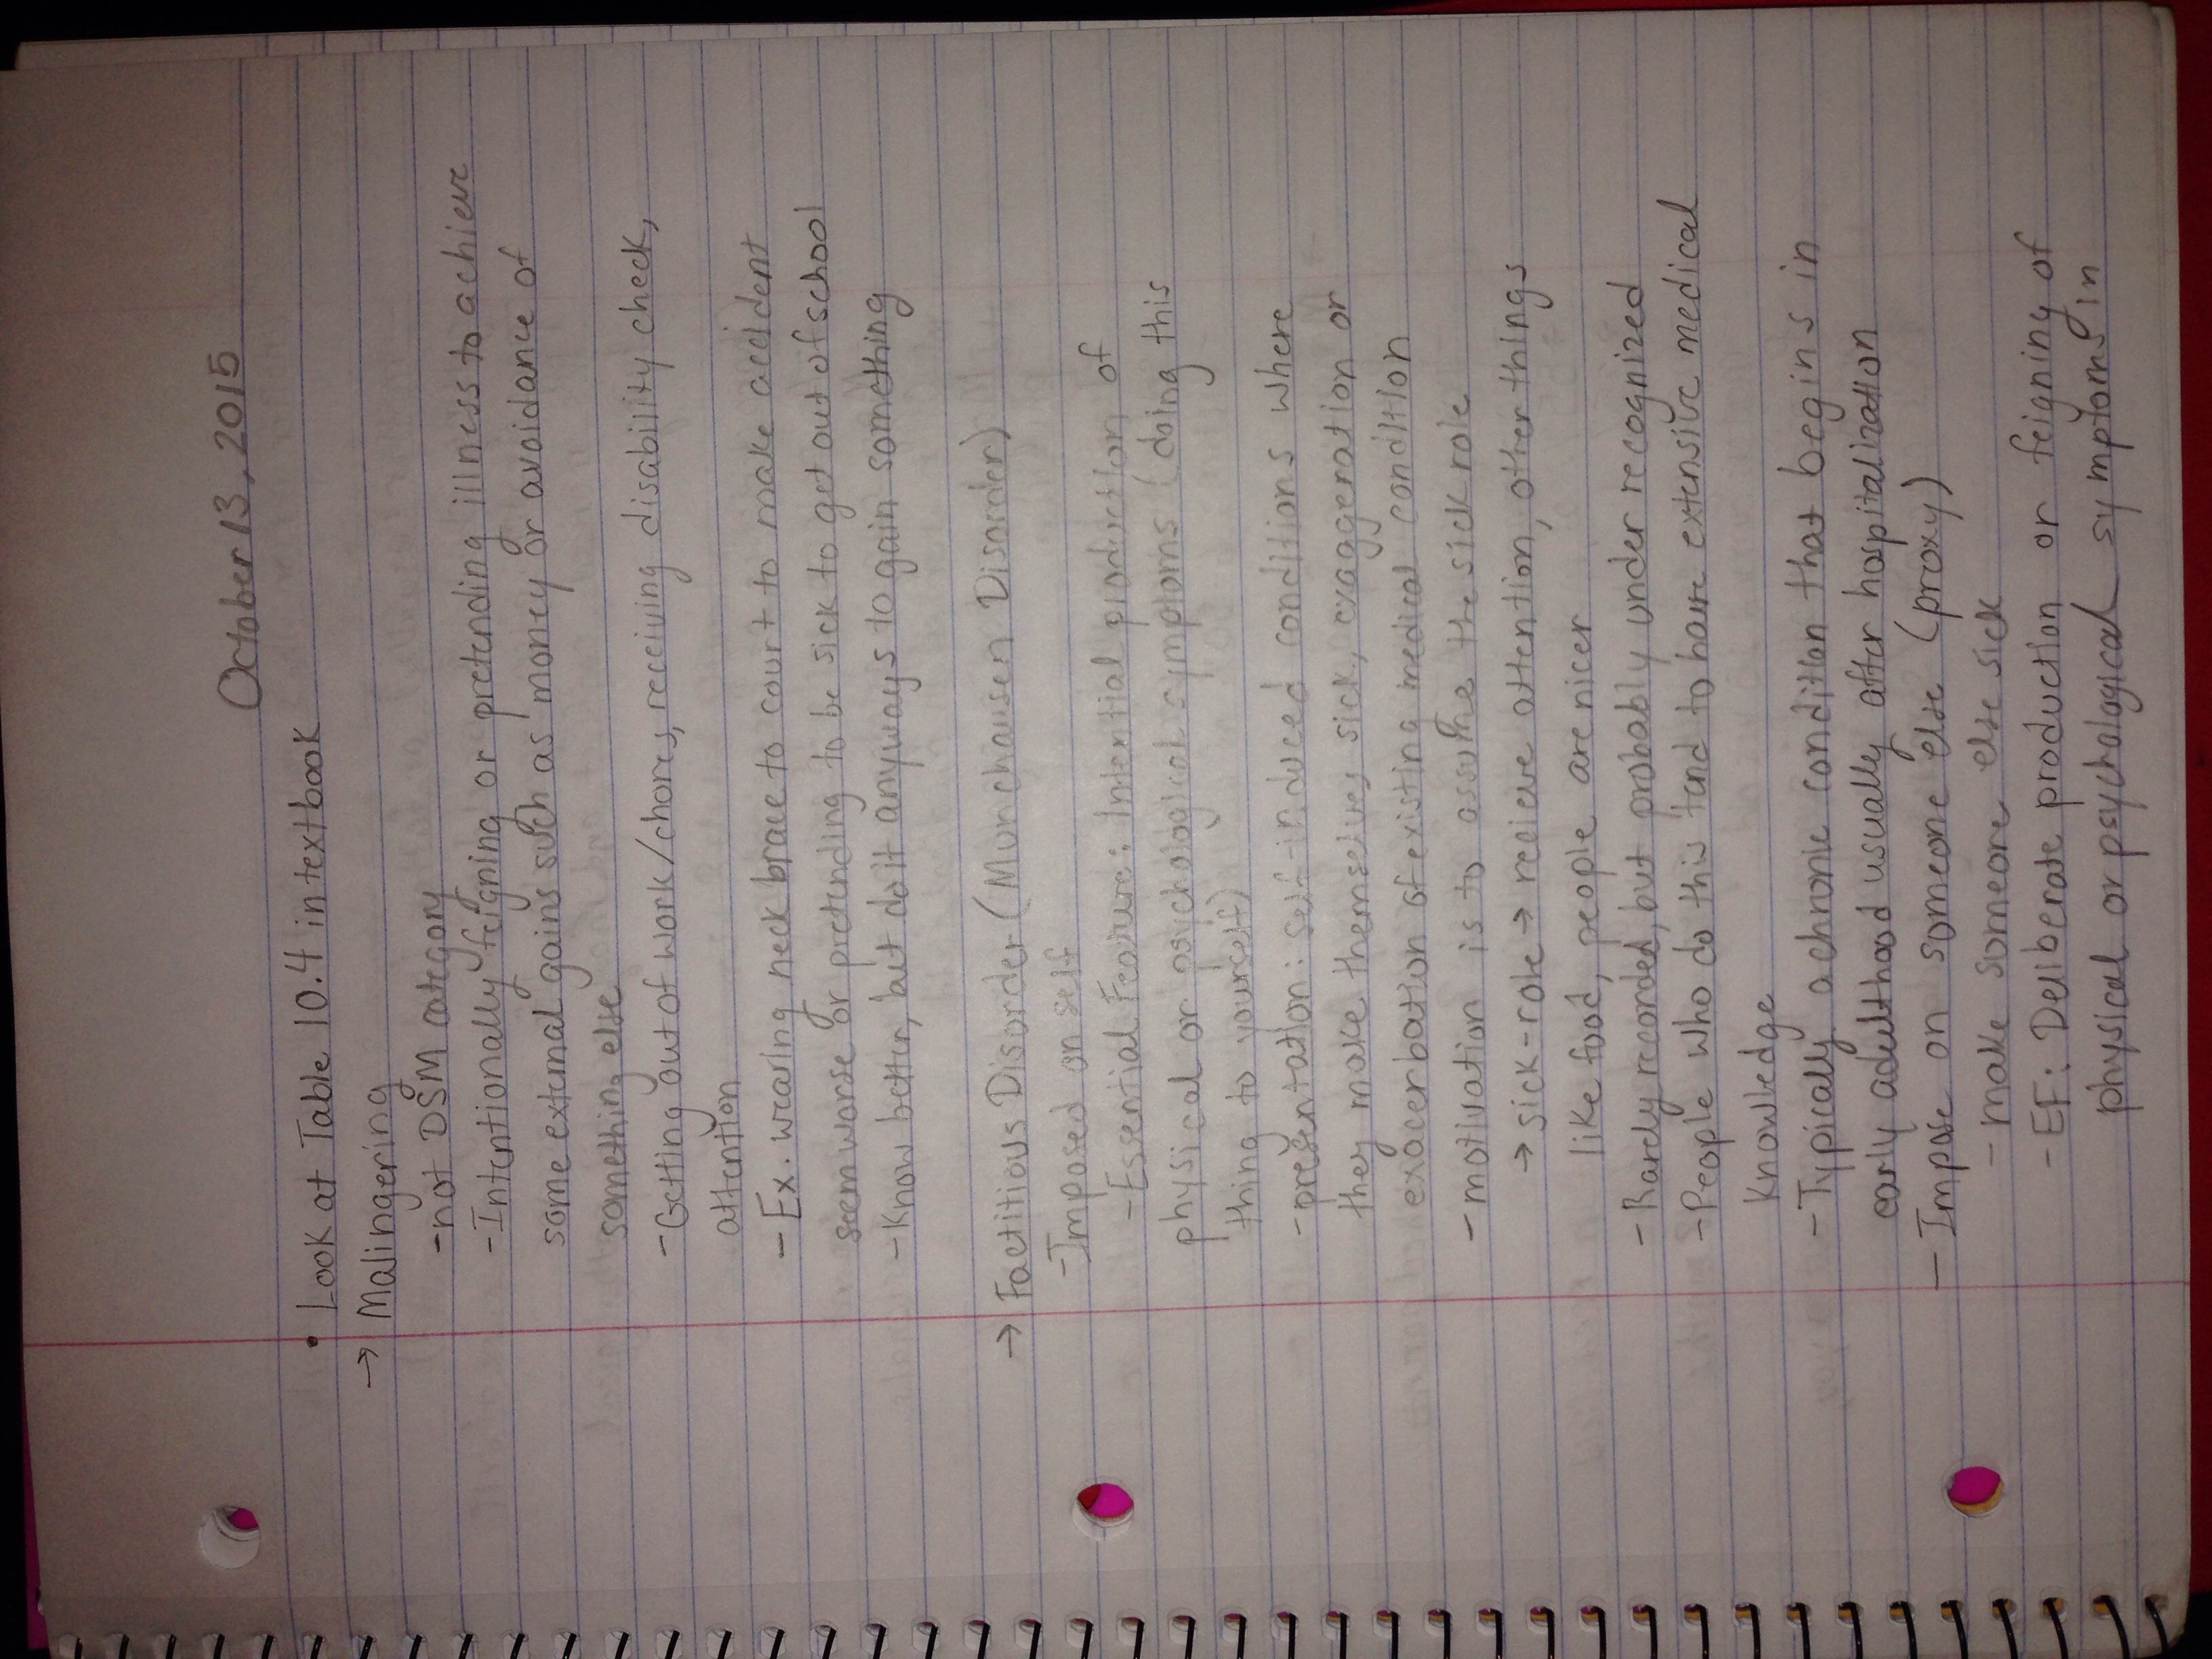 October 13, 2015
• Look at Table 10.4 in textbook
→ Malingering
- not DSM category
- Intentionally feigning or pretending illness to achieve
some external gains such as money or avoidance of
something else
- Getting out of work/chores, receiving disability check,
attention
- Ex. wearing neck brace to court to make accident
seem worse or pretending to be sick to get out of school
- Know better, but do it anyways to gain something
→ Factitious Disorder (Munchausen Disorder)
- Imposed on self
- Essential Feature: Intential production of
physical or psichological symptoms (doing this
thing to yourself)
- presentation: self-induced conditions where
they make themselves sick, exaggeration or
exacerbation of existing medical condition
- motivation is to assume the sick role
→ sick-role → recieve attention, other things
like food, people are nicer
- Rarely recorded, but probably under recognized
- People who do this tend to have extensive medical
knowledge
- Typically a chronic condition that begins in
early adulthood usually after hospitalization
- Impose on someone else (proxy)
- make someone else sick
- EF: Deliberate production or feigning of
physical or psychological symptoms in